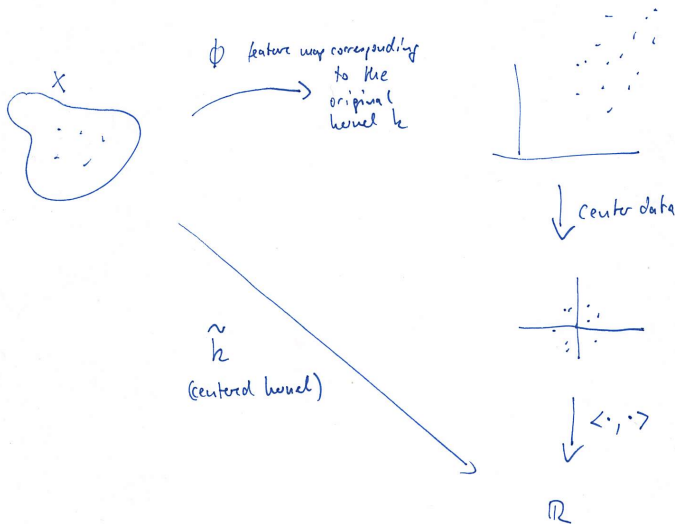 X
ϕ feature map corresponding
to the
original
kernel k
center data
k̃
(centered kernel)
<·,·>
ℝ